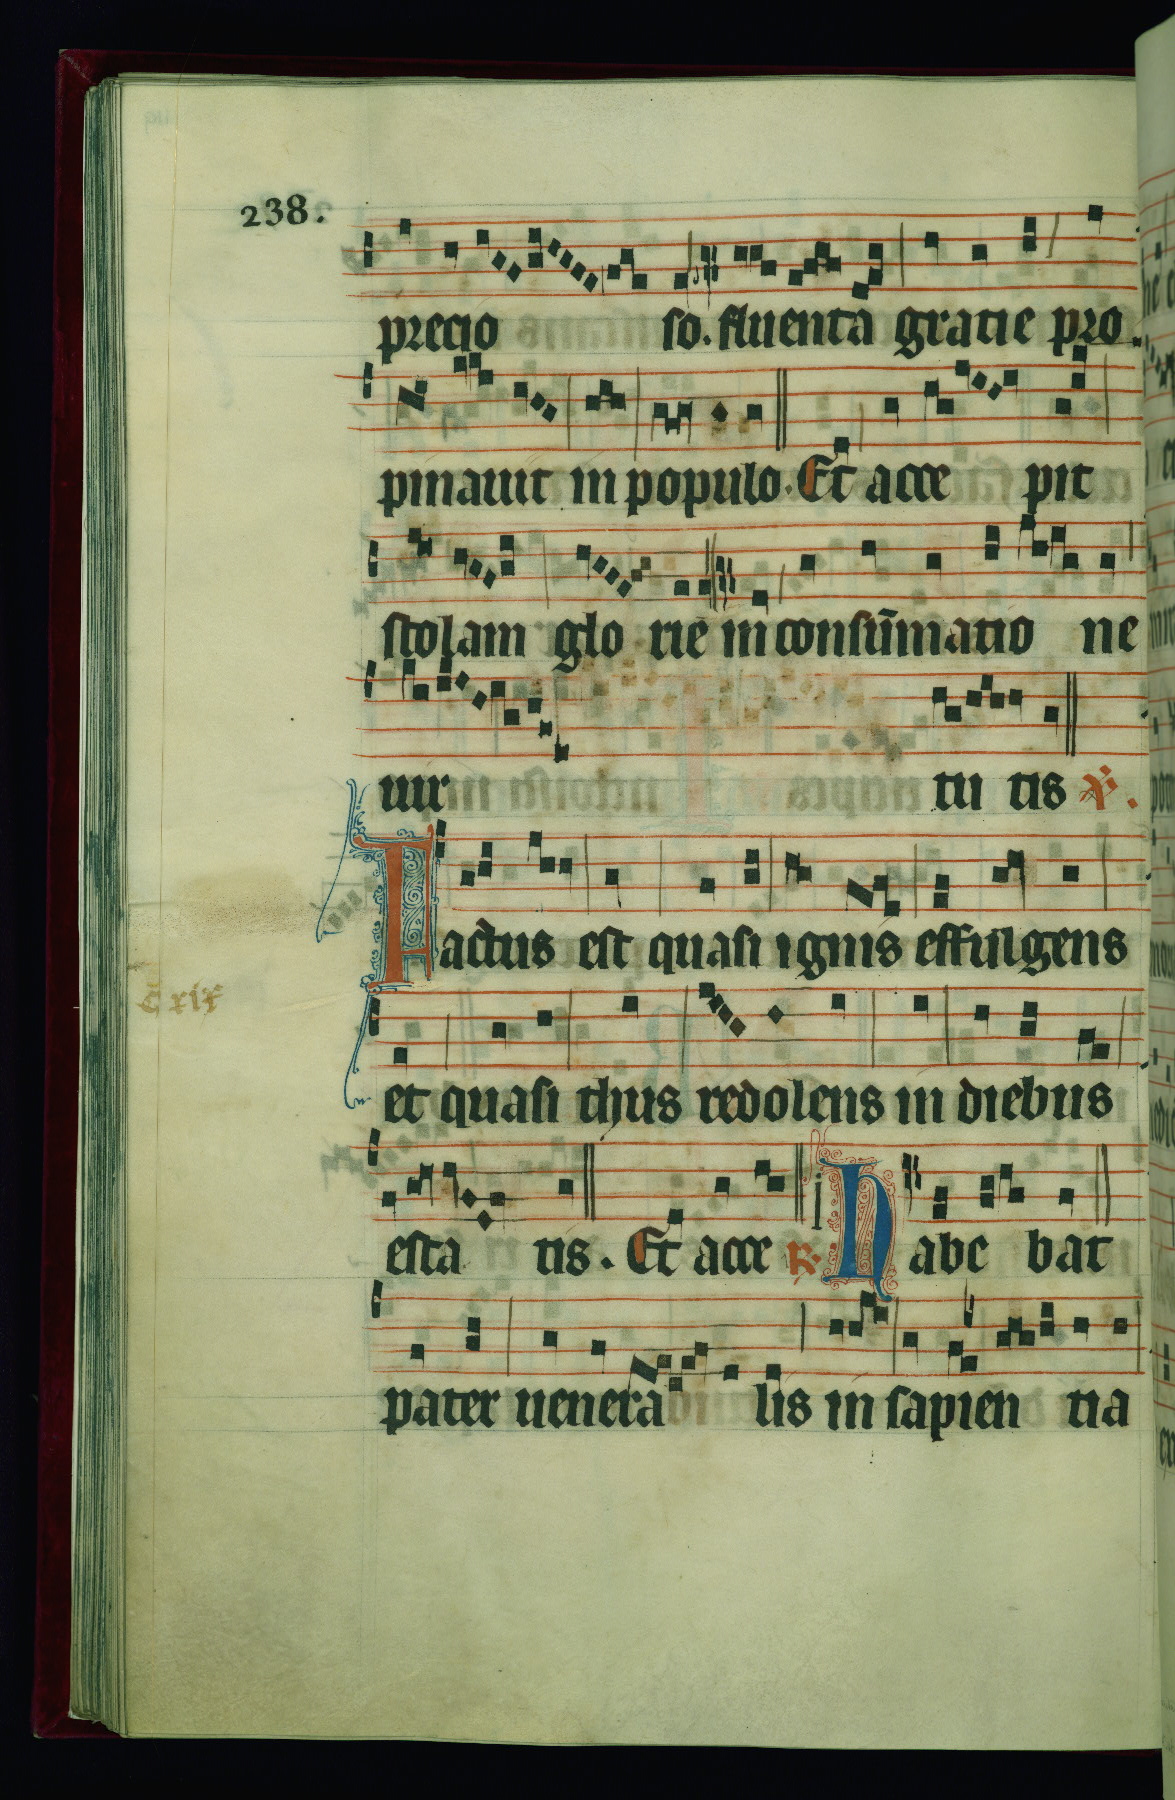 238.
precio so. fluenta gratie pro
pinauit in populo. Et acce pit
stolam glo rie in consūmatio ne
uir tu tis ℣.
Factus est quasi ignis effulgens
C xix
et quasi thus redolens in diebus
esta tis. Et acce ℟. i Habe bat
pater uenera lis in sapien tia